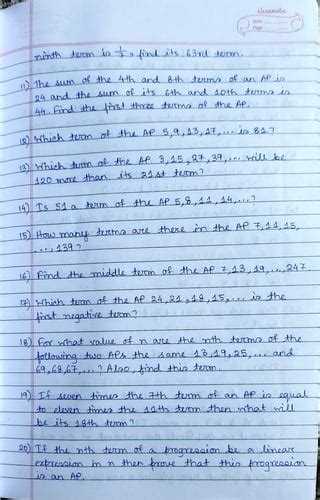 classmate
Date
Page
ninth term is 1/7, find its 63rd term.
11) The sum of the 4th and 8th terms of an AP is
24 and the sum of its 6th and 10th terms is
44. Find the first three terms of the AP.
12) Which term of the AP 5,9,13,17,... is 81?
13) Which term of the AP 3,15,27,39,... will be
120 more than its 21st term?
14) Is 51 a term of the AP 5,8,11,14,...?
15) How many terms are there in the AP 7,11,15,
...,139?
16) Find the middle term of the AP 7,13,19,...,247.
17) Which term of the AP 24,21,18,15,... is the
first negative term?
18) For what value of n are the nth terms of the
following two APs the same 13,19,25,... and
69,68,67,...? Also, find this term.
19) If seven times the 7th term of an AP is equal
to eleven times the 11th term then what will
be its 18th term?
20) If the nth term of a progression be a linear
expression in n then prove that this progression
is an AP.